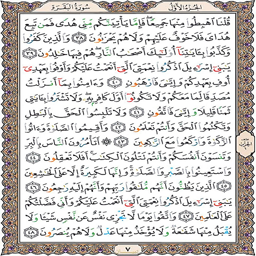 سورة البقرة
الجزء الأول
قلنا اهبطوا منها جميعا فإما يأتينكم مني هدى فمن تبع
هداي فلا خوف عليهم ولا هم يحزنون ٣٨ والذين كفروا
وكذبوا بآياتنا أولئك أصحاب النار هم فيها خالدون ٣٩
يبني إسرءيل اذكروا نعمتي التي أنعمت عليكم وأوفوا بعهدي
أوف بعهدكم وإيي فارهبون ٤٠ وءامنوا بما أنزلت
مصدقا لما معكم ولا تكونوا أول كافر به ولا تشتروا بآيتي
ثمنا قليلا وإيي فاتقون ٤١ ولا تلبسوا الحق بالبطل
وتكتموا الحق وأنتم تعلمون ٤٢ وأقيموا الصلوة وءاتوا
الزكوة واركعوا مع الركعين ٤٣ أتأمرون الناس بالبر
وتنسون أنفسكم وأنتم تتلون الكتب أفلا تعقلون ٤٤
واستعينوا بالصبر والصلوة وإنها لكبيرة إلا على الخشعين ٤٥
الذين يظنون أنهم ملقوا ربهم وأنهم إليه رجعون ٤٦
يبني إسرءيل اذكروا نعمتي التي أنعمت عليكم وأني فضلتكم
على العلمين ٤٧ واتقوا يوما لا تجزي نفس عن نفس شيئا ولا
يقبل منها شفعة ولا يؤخذ منها عدل ولا هم ينصرون ٤٨
٧